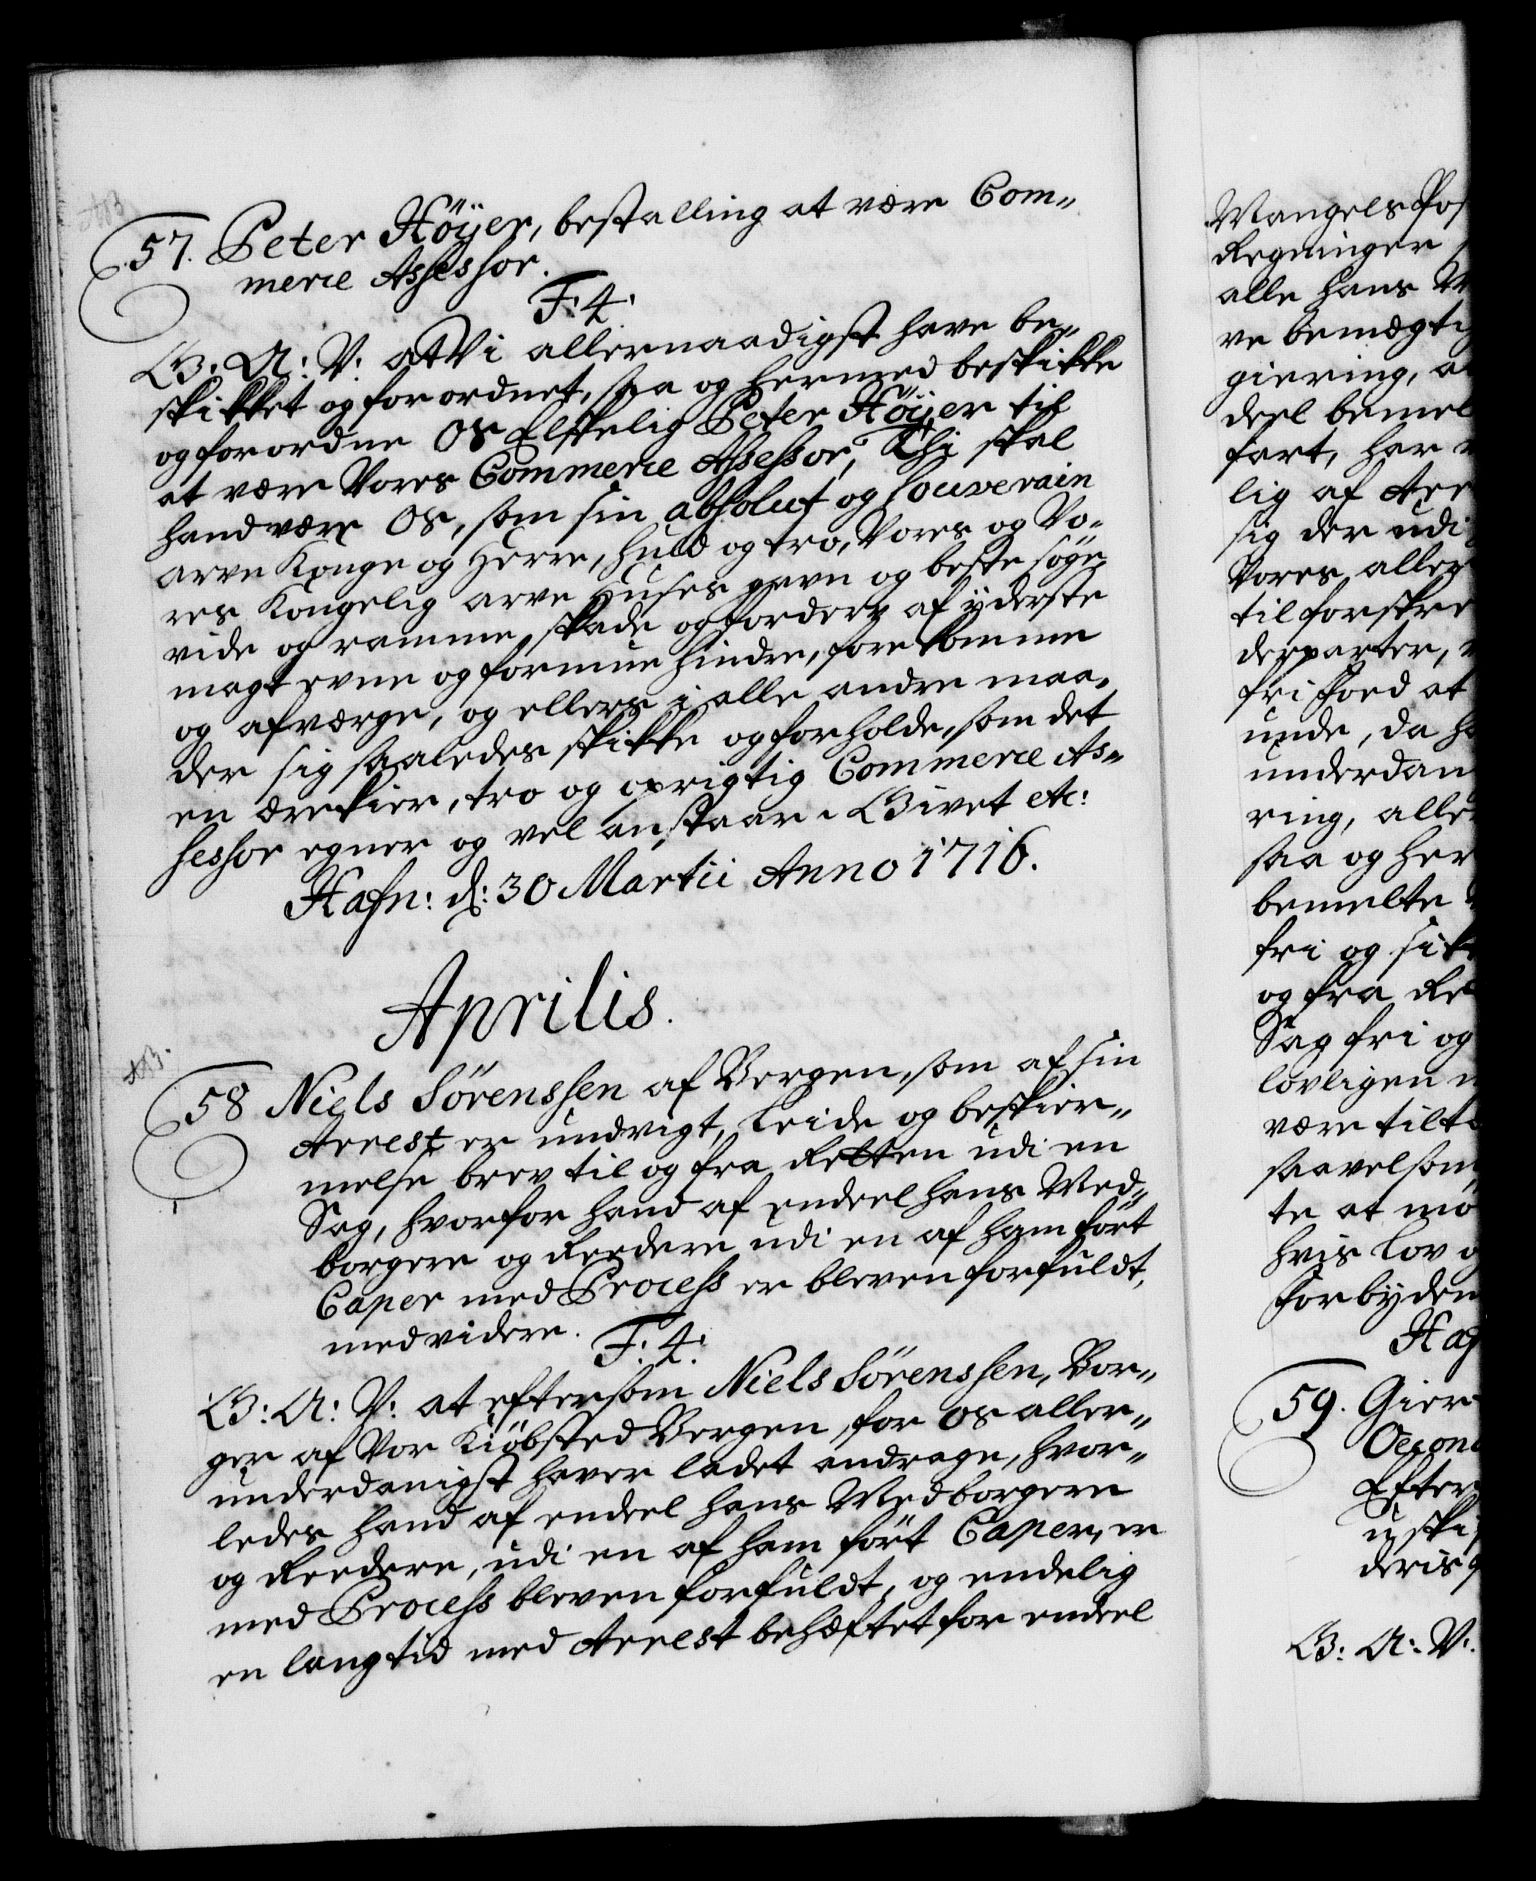 AB.
57. Peter Höyer, bestalling at være Com„
merce Assessor.
F. 4.
G: A: V: at Vi allernaadigst have be„
skikket og forordnet, saa og hermed beskikke
og forordne Os Elskelig Peter Höyer til
at være Vores Commerce Assessor, Thi skal
hand være Os, som sin absolut og souverain
arve Konge og Herre, huld og tro, Vores og Vo„
res Kongelig arve Huses gavn og beste söge,
vide og ramme, skade og forderv af yderste
magt evne og formue hindre, forekomme
og afværge, og ellers i alle andre maa„
der sig saaledes skikke og forholde, som det
en ærekier, tro og oprigtig Commerce As„
sessor egner og vel anstaar. Givet etc:
Hafn: d: 30 Martii Anno 1716.
Aprilis.
AB.
58 Niels Sörenssen af Bergen, som af sin
Arrest er undvigt, Leide og beskier„
melse brev til og fra Retten udi en
Sag, hvorfor hand af endeel hans Med„
borgere og Reedere udi en af ham fört
Caper med Process er bleven forfuldt,
med videre.
F: 4:
G: A: V: at eftersom Niels Sörenssen, Bor„
ger af Vor Kiöbsted Bergen, for Os aller„
underdanigst haver ladet andrage, hvor„
ledes hand af endeel hans Medborgere
og Reedere, udi en af ham fört Caper, er
med Process bleven forfuldt, og endelig
en lang tid med Arrest behæftet for endeel
Mangels
Regninger
alle hans
ve bemægti
giering, a
deel bemel
fart, har
lig af Arr
sig der udi
Vores aller
til forskre
derparter,
fri Foed at
unde, da
underdan
ring, aller
saa og her
bemelte
fri og sik
og fra Re
Sag fri og
lovligen
være tilta
saavelsom
te at mö
hvis Lov
Forbyden
Haf
59. Gier
Oecono
Efter
uski
deris
G: A: V: